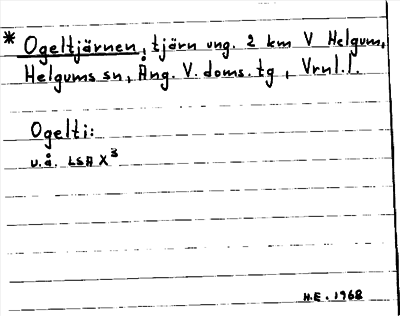 * Ogeltjärnen, tjärn ung. 2 km V Helgum,
Helgums sn, Ång. V. doms. tg, Vrnl.l.
Ogelti:
u.å. LSA X³
H.E. 1968